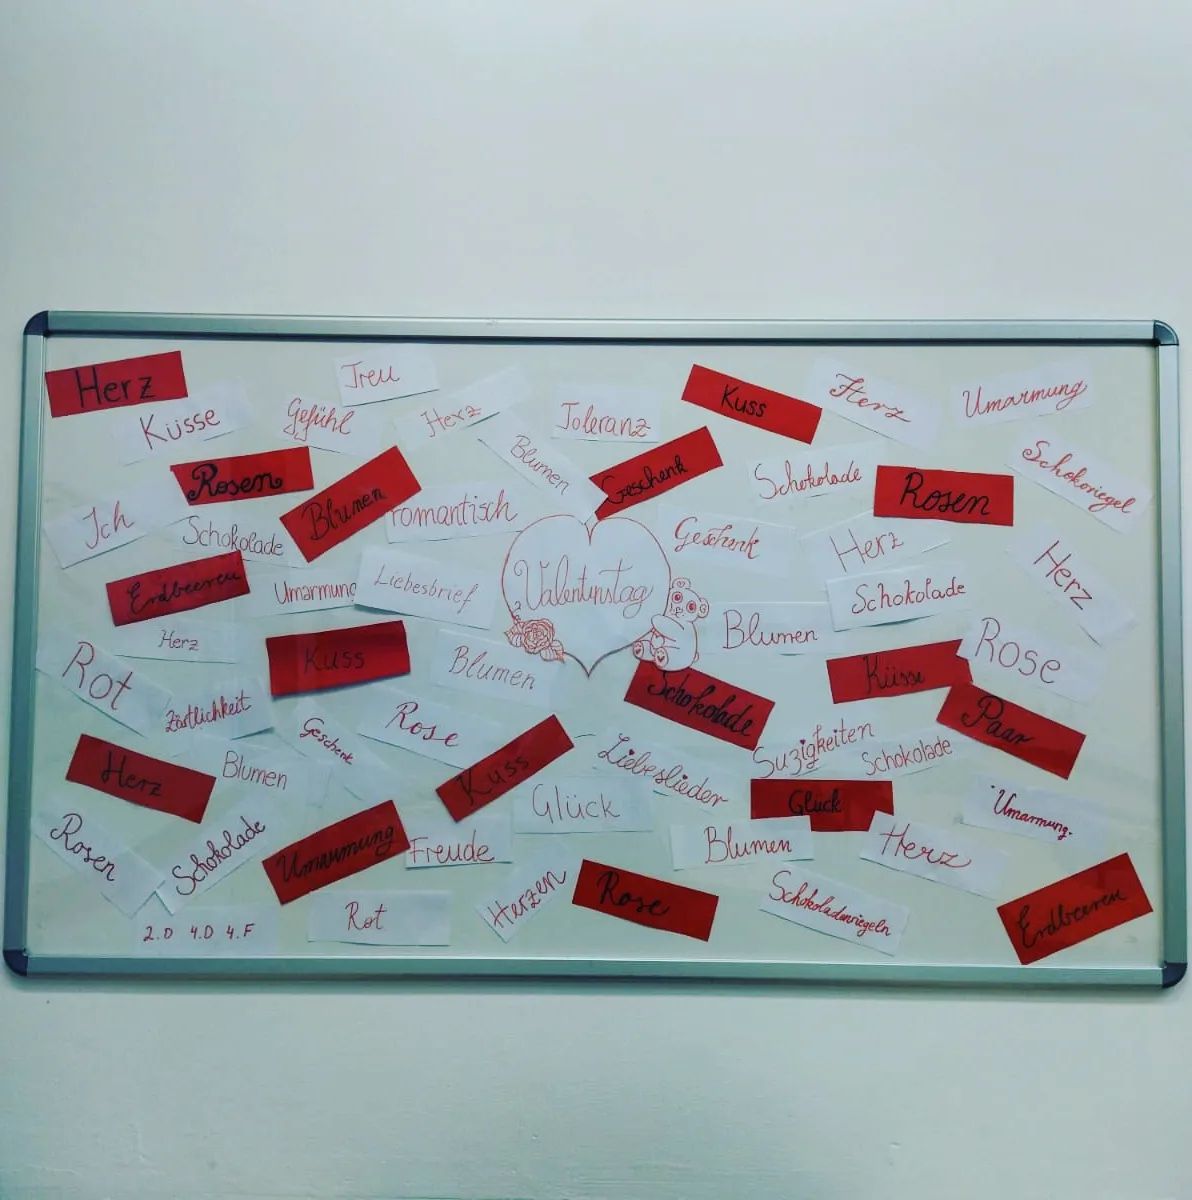 Herz
Treu
Küsse
Gefühl
Herz
Toleranz
Kuss
Herz
Umarmung
Rosen
Blumen
Blumen
Geschenk
Schokolade
Rosen
Schokoriegel
Ich
Schokolade
romantisch
Geschenk
Herz
Herz
Erdbeeren
Umarmung
Liebesbrief
Valentinstag
Schokolade
Herz
Kuss
Blumen
Blumen
Küsse
Rose
Rot
Zärtlichkeit
Geschenk
Rose
Schokolade
Suzigkeiten
Schokolade
Paar
Herz
Blumen
Kuss
Liebeslieder
Glück
Glück
Umarmung
Rosen
Schokolade
Umarmung
Freude
Blumen
Herz
2.D 4.D 4.F
Rot
Herzen
Rose
Schokoladenriegeln
Erdbeeren